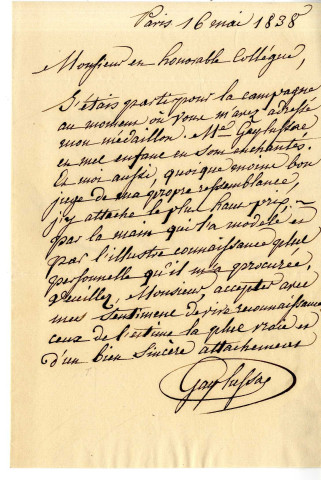 Paris 16 mai 1838
Monsieur en honorable Collégue,
J'étais parti pour la campagne
au moment où vous m'avez adressé
mon médaillon. Me Gay lussac
en mes enfans en son enchantés.
Et moi aussi, quoique moins bon
juge de ma propre ressemblance,
j'y attache le plus haut prix,
par la main qui l'a modelé et
par l'illustre connaissance plus
personnelle qu'il m'a procurée.
Veuillez, Monsieur, accepter avec
mes sentimens de vive reconnaissance
ceux de l'estime la plus vraie et
d'un bien sincère attachement
Gay lussac